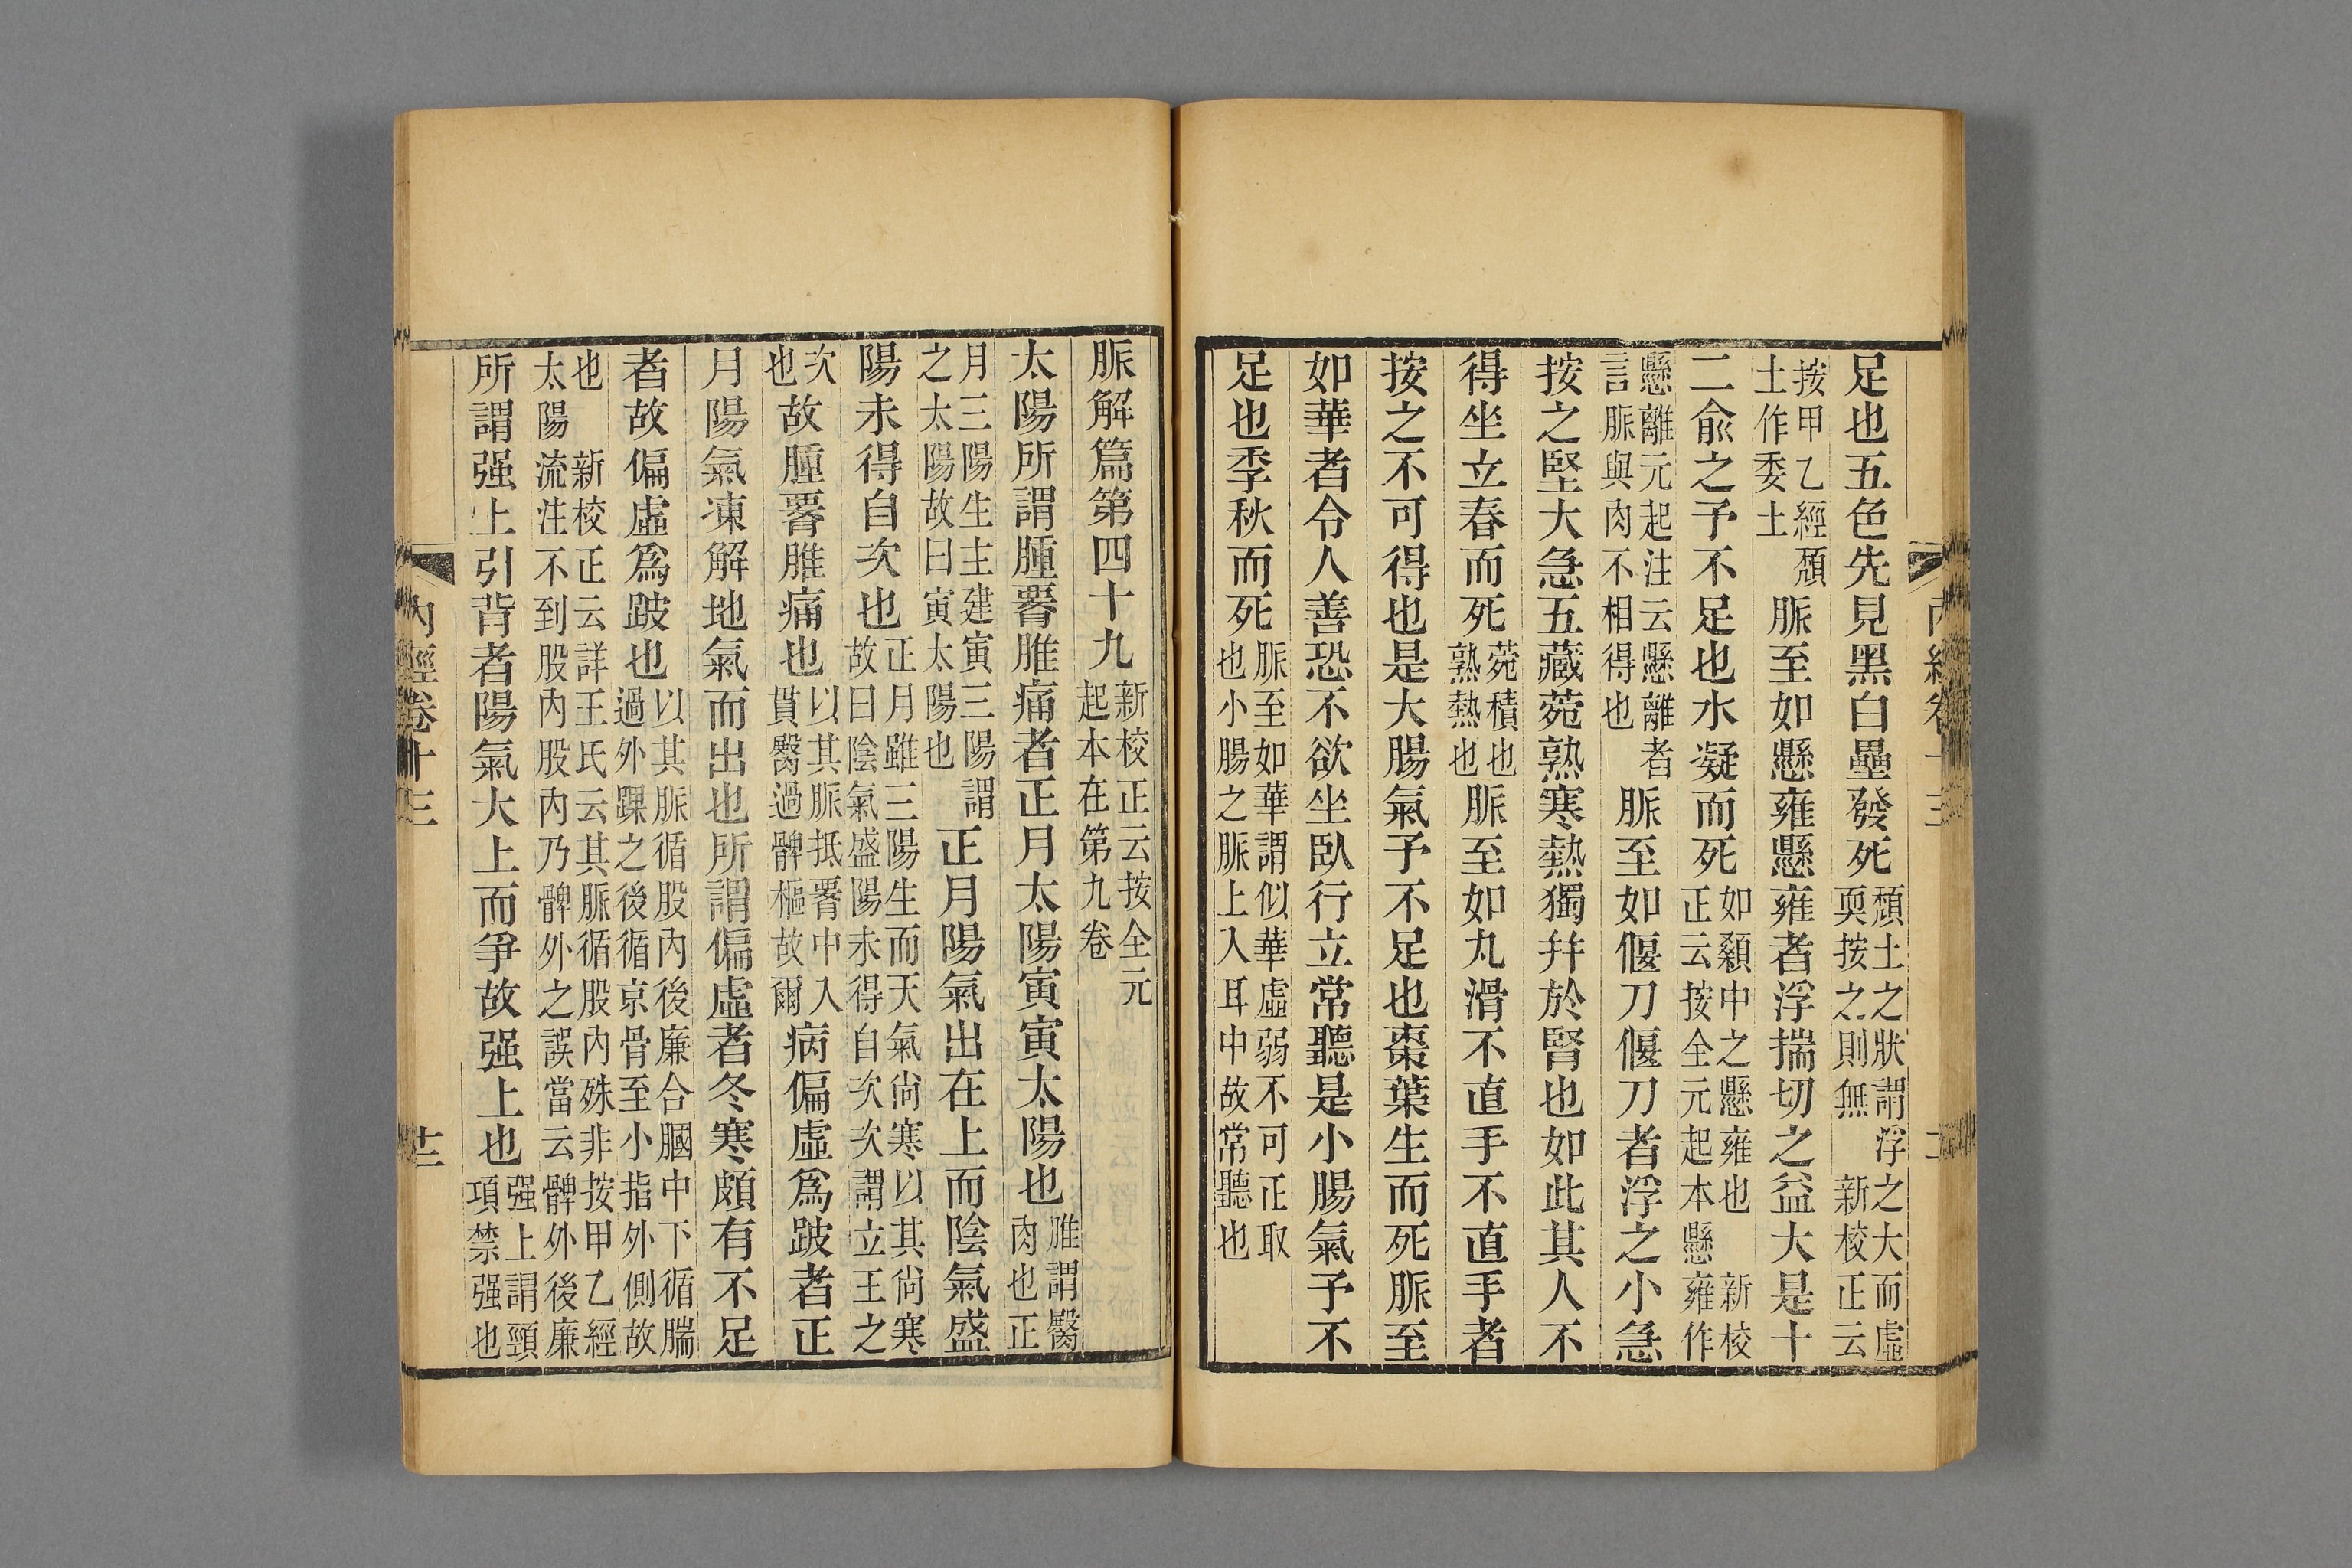 足也五色先見黑白壘發死
頹土之狀謂浮之大而虛
耎按之則無　新校正云
按甲乙經頹
土作委土
脈至如懸雍懸雍者浮揣切之益大是十
二兪之予不足也水凝而死
如顙中之懸雍也　新校
正云按全元起本懸雍作
懸離元起注云懸離者
言脈與肉不相得也
脈至如偃刀偃刀者浮之小急
按之堅大急五藏菀熟寒熱獨并於腎也如此其人不
得坐立春而死
菀積也
熟熱也
脈至如丸滑不直手不直手者
按之不可得也是大腸氣予不足也棗葉生而死脈至
如華者令人善恐不欲坐臥行立常聽是小腸氣予不
足也季秋而死
脈至如華謂似華虛弱不可正取
也小腸之脈上入耳中故常聽也
脈解篇第四十九
新校正云按全元
起本在第九卷
太陽所謂腫腰脽痛者正月太陽寅寅太陽也
脽謂臋
肉也正
月三陽生主建寅三陽謂
之太陽故曰寅太陽也
正月陽氣出在上而陰氣盛
陽未得自次也
正月雖三陽生而天氣尚寒以其尚寒
故曰陰氣盛陽未得自次次謂立王之
次
也
故腫腰脽痛也
以其脈抵腰中入
貫臋過髀樞故爾
病偏虛爲跛者正
月陽氣凍解地氣而出也所謂偏虛者冬寒頗有不足
者故偏虛爲跛也
以其脈循股內後廉合膕中下循腨
過外踝之後循京骨至小指外側故
也　新校正云詳王氏云其脈循股內殊非按甲乙經
太陽流注不到股內股內乃髀外之誤當云髀外後廉
所謂强上引背者陽氣大上而爭故强上也
强上謂頸
項禁强也
內經卷十三
十二